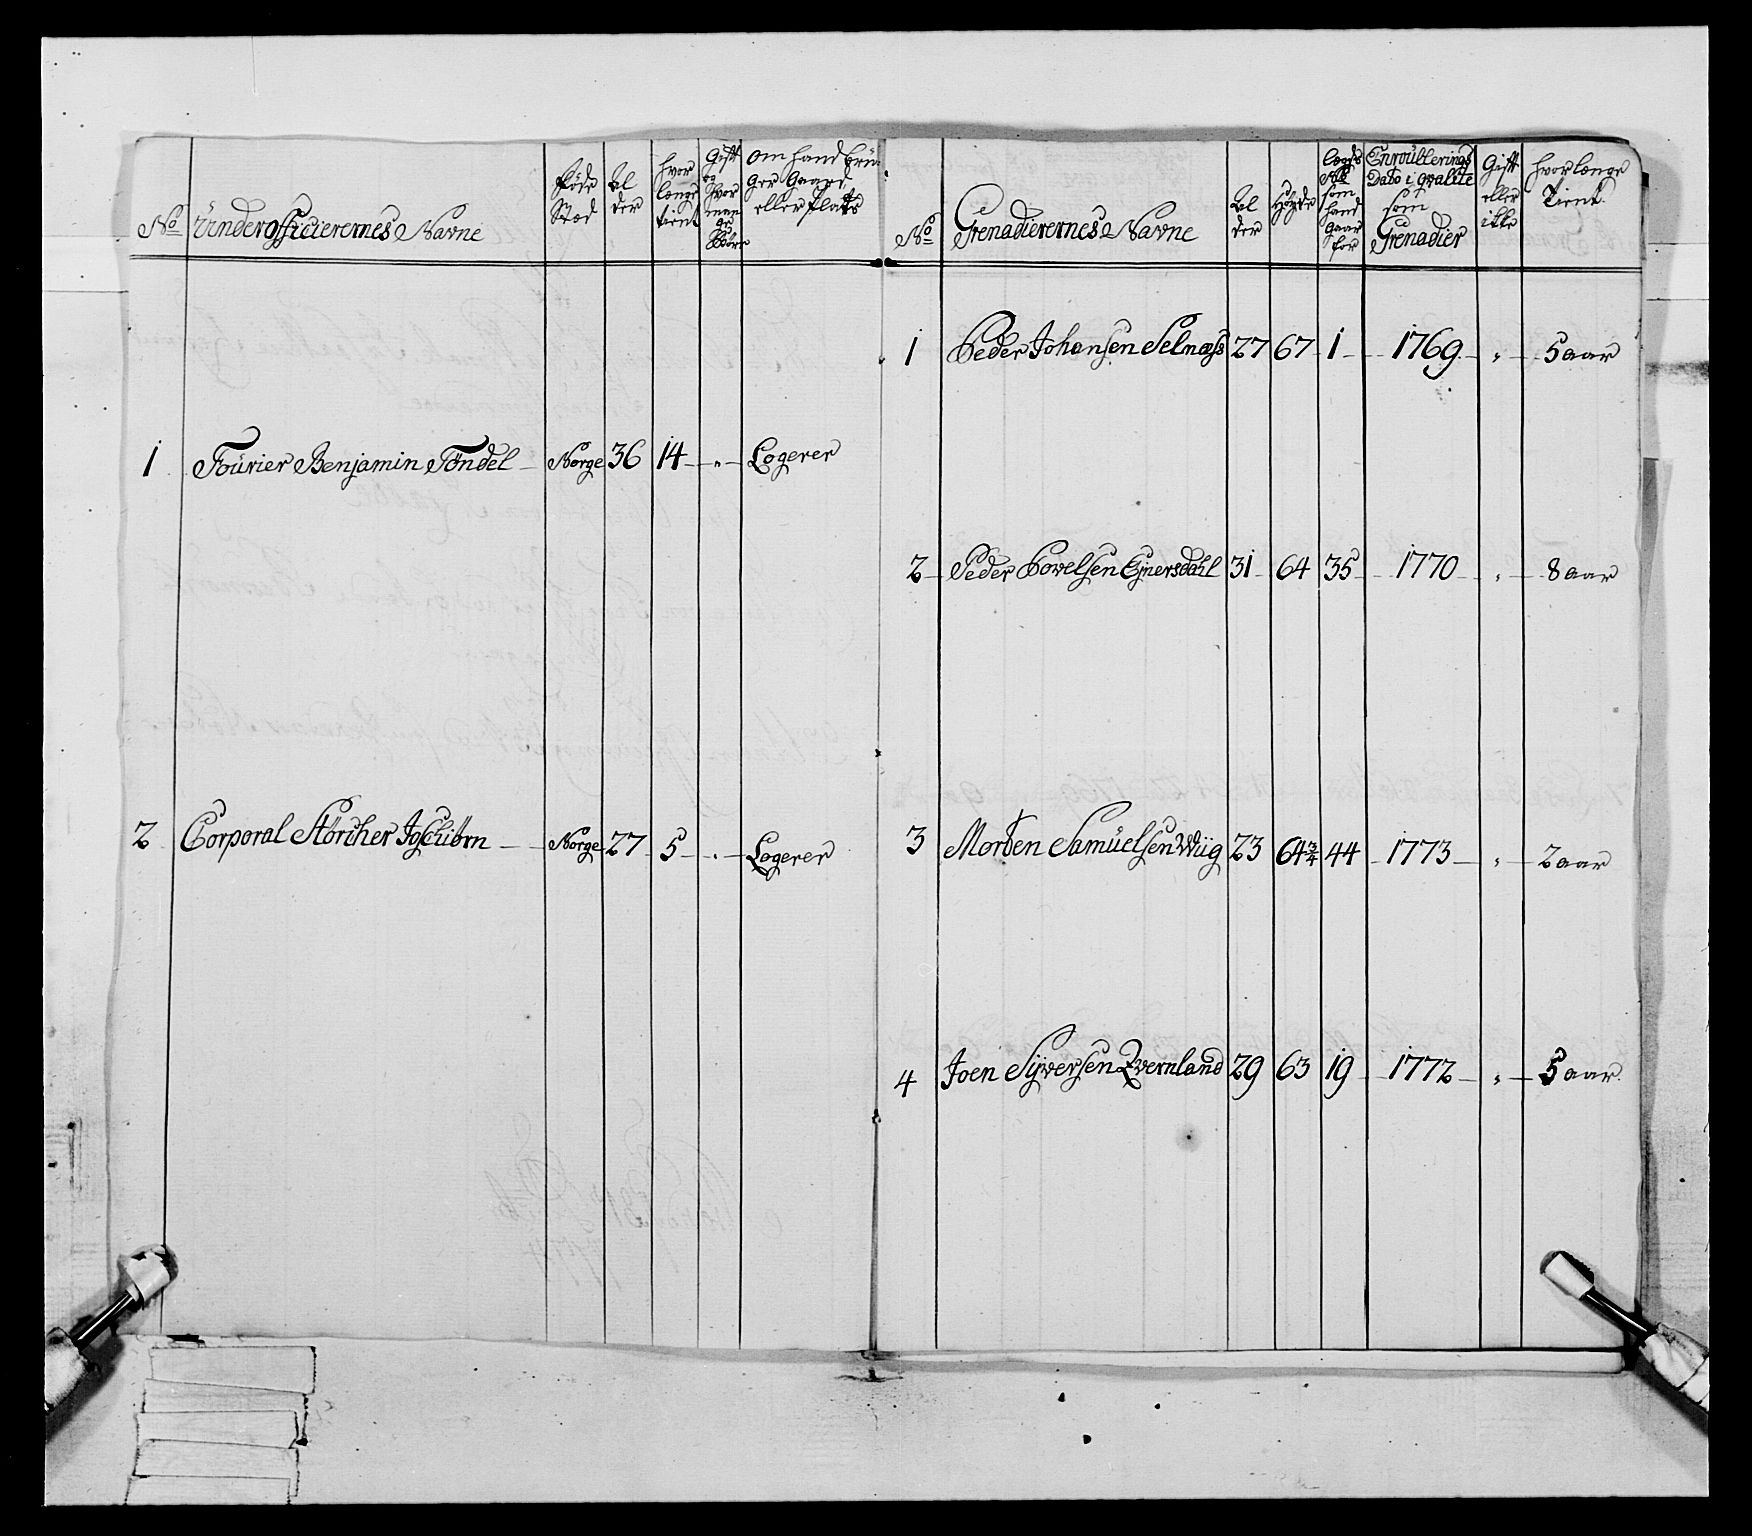 No
Ünderofficierernes Navne
Føde
Stæd
Al
der
hvor
længe
tient
Gift
og
hvor
man
ge
Børn
om hand brü-
ger Gaard
eller Plads
1 Foürier Benjamin Tøndel Norge 36 14 " Logerer
2 Corporal Størcher Norge 27 5 " Logerer
No
Grenadierernes Navne
Al
der
Høyde
Lægds
No
som
hand
gaar
for
Enroüllerings
Dato i qvalite
som
Grenadier
Gift
eller
ikke
hvor længe
Tient
1 Peder Johansen Selnæss 27 67 1 1769 " 5 aar
2 Peder Povelsen Ejnersdahl 31 64 35 1770 " 8 aar
3 Morten Samüelsen Wiig 23 64¾ 44 1773 " 2 aar
4 Joen Sÿversen Qvernland 29 63 19 1772 " 5 aar